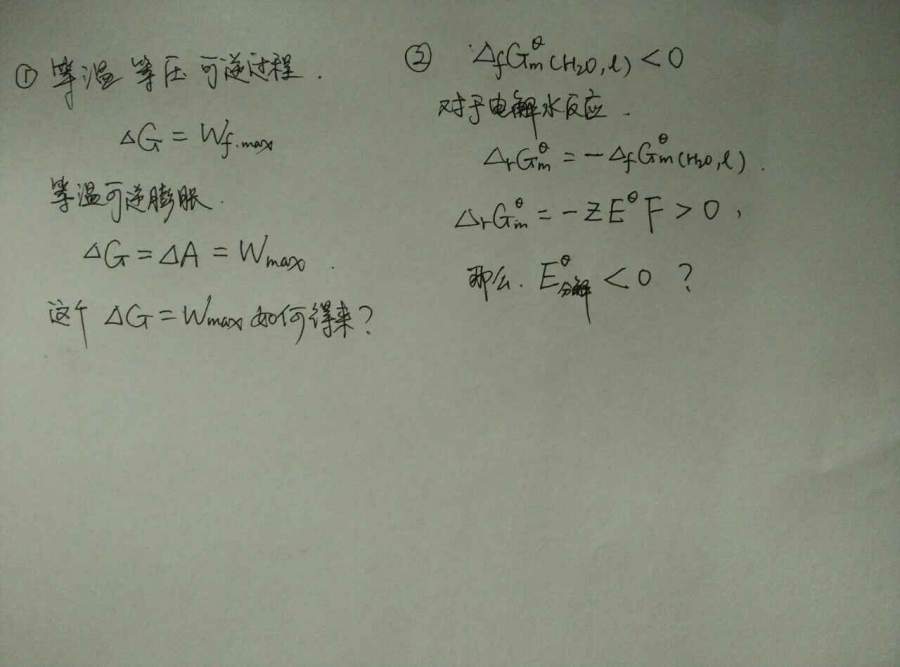 ① 等温等压可逆过程.
△G = Wf.max
等温可逆膨胀.
△G = △A = Wmax.
这个 △G = Wmax 如何得来?
② ΔfGm^θ(H2O, l) < 0
对于电解水反应.
ΔrGm^θ = -ΔfGm^θ(H2O, l).
ΔrGm^θ = -ZE^θF > 0,
那么. E^θ分解 < 0 ?